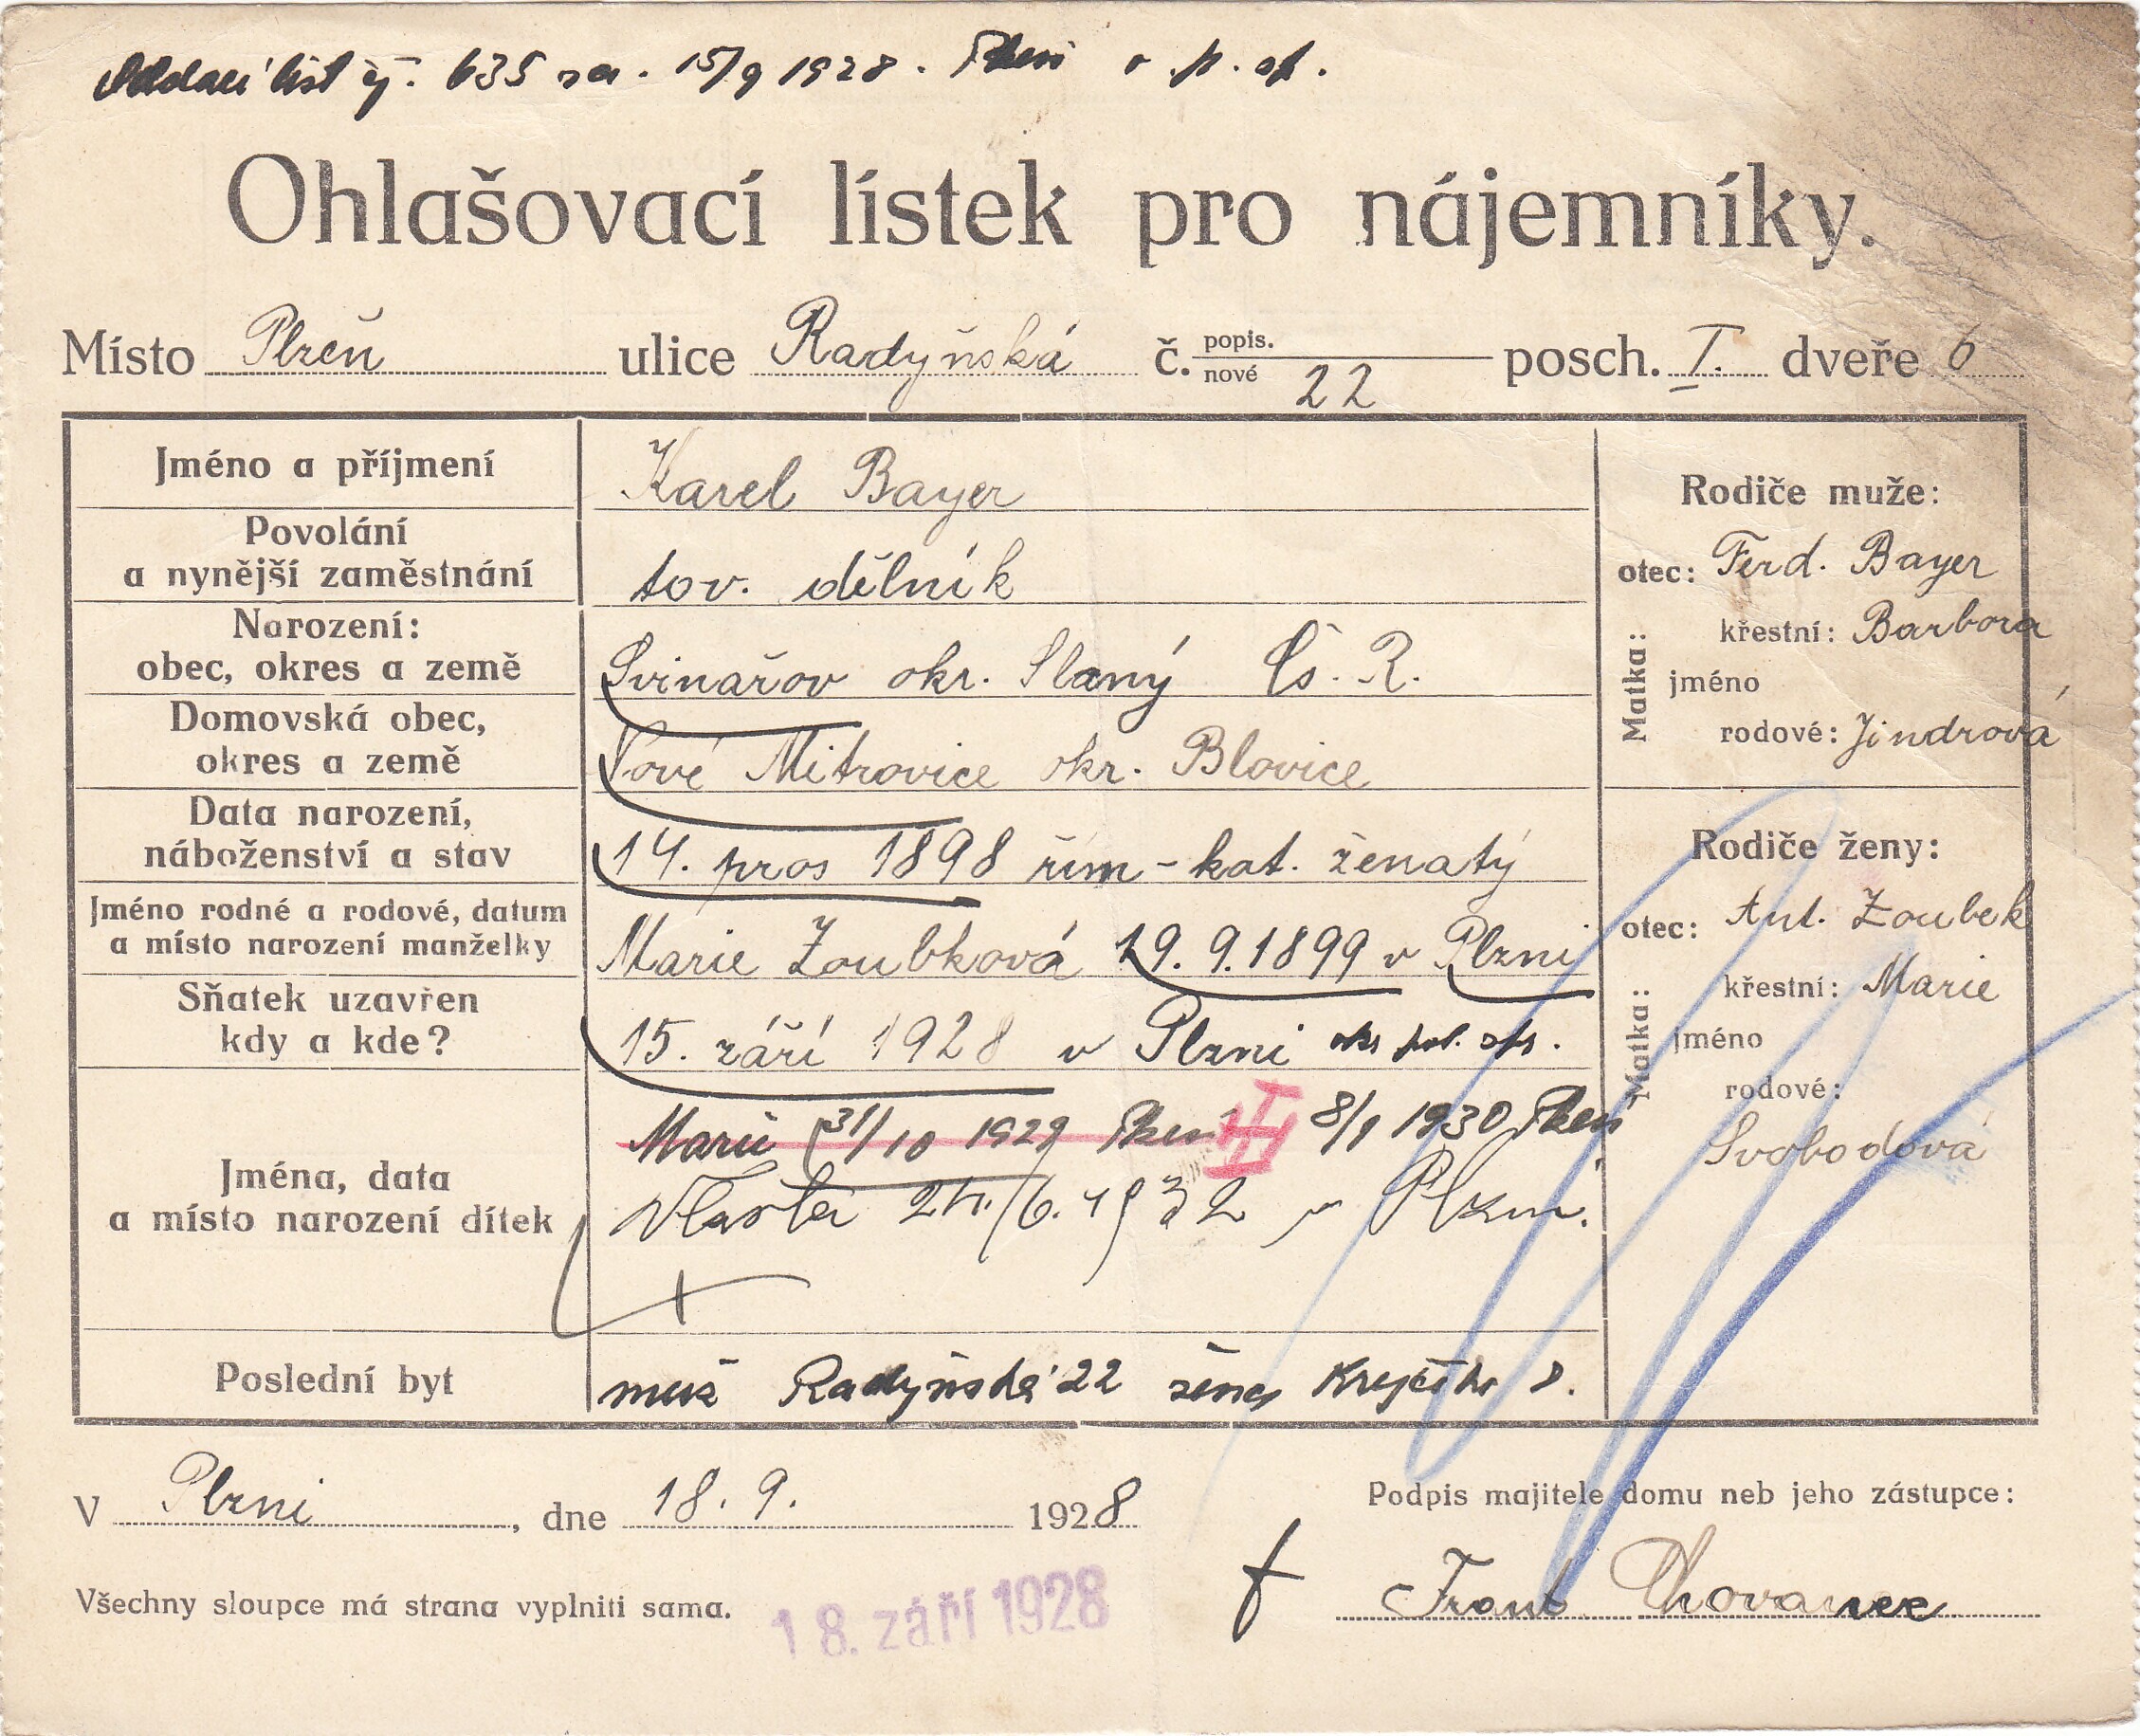 Oddací list čj. 635 za. 15/9 1928. Plzni v p. sp.
Ohlašovací lístek pro nájemníky.
Místo Plzeň ulice Radyňská č. popis. nové 22 posch. I. dveře 6
Jméno a příjmení Karel Bayer
Povolání
a nynější zaměstnání tov. dělník
Narození:
obec, okres a země Svinařov okr. Slaný Čs. R.
Domovská obec,
okres a země Nové Mitrovice okr. Blovice
Data narození,
náboženství a stav 14. pros 1898 řím-kat. ženatý
Jméno rodné a rodové, datum
a místo narození manželky Marie Zoubková 19. 9. 1899 v Plzni
Sňatek uzavřen
kdy a kde? 15. září 1928 v Plzni okr. pol. spr.
Jména, data
a místo narození dítek
Marie 31/10 1929 Plzeň 8/1 1930 Plzeň
Vlasta 24./6. 1932 v Plzni.
Poslední byt muž Radyňská 22 žena Krejčího 8.
Rodiče muže:
otec: Ferd. Bayer
Matka: jméno
křestní: Barbora
rodové: Jindrová
Rodiče ženy:
otec: Ant. Zoubek
Matka: jméno
křestní: Marie
rodové:
Svobodová
V Plzni, dne 18. 9. 1928
Podpis majitele domu neb jeho zástupce:
Frant Chovanec
Všechny sloupce má strana vyplniti sama.
18. září 1928